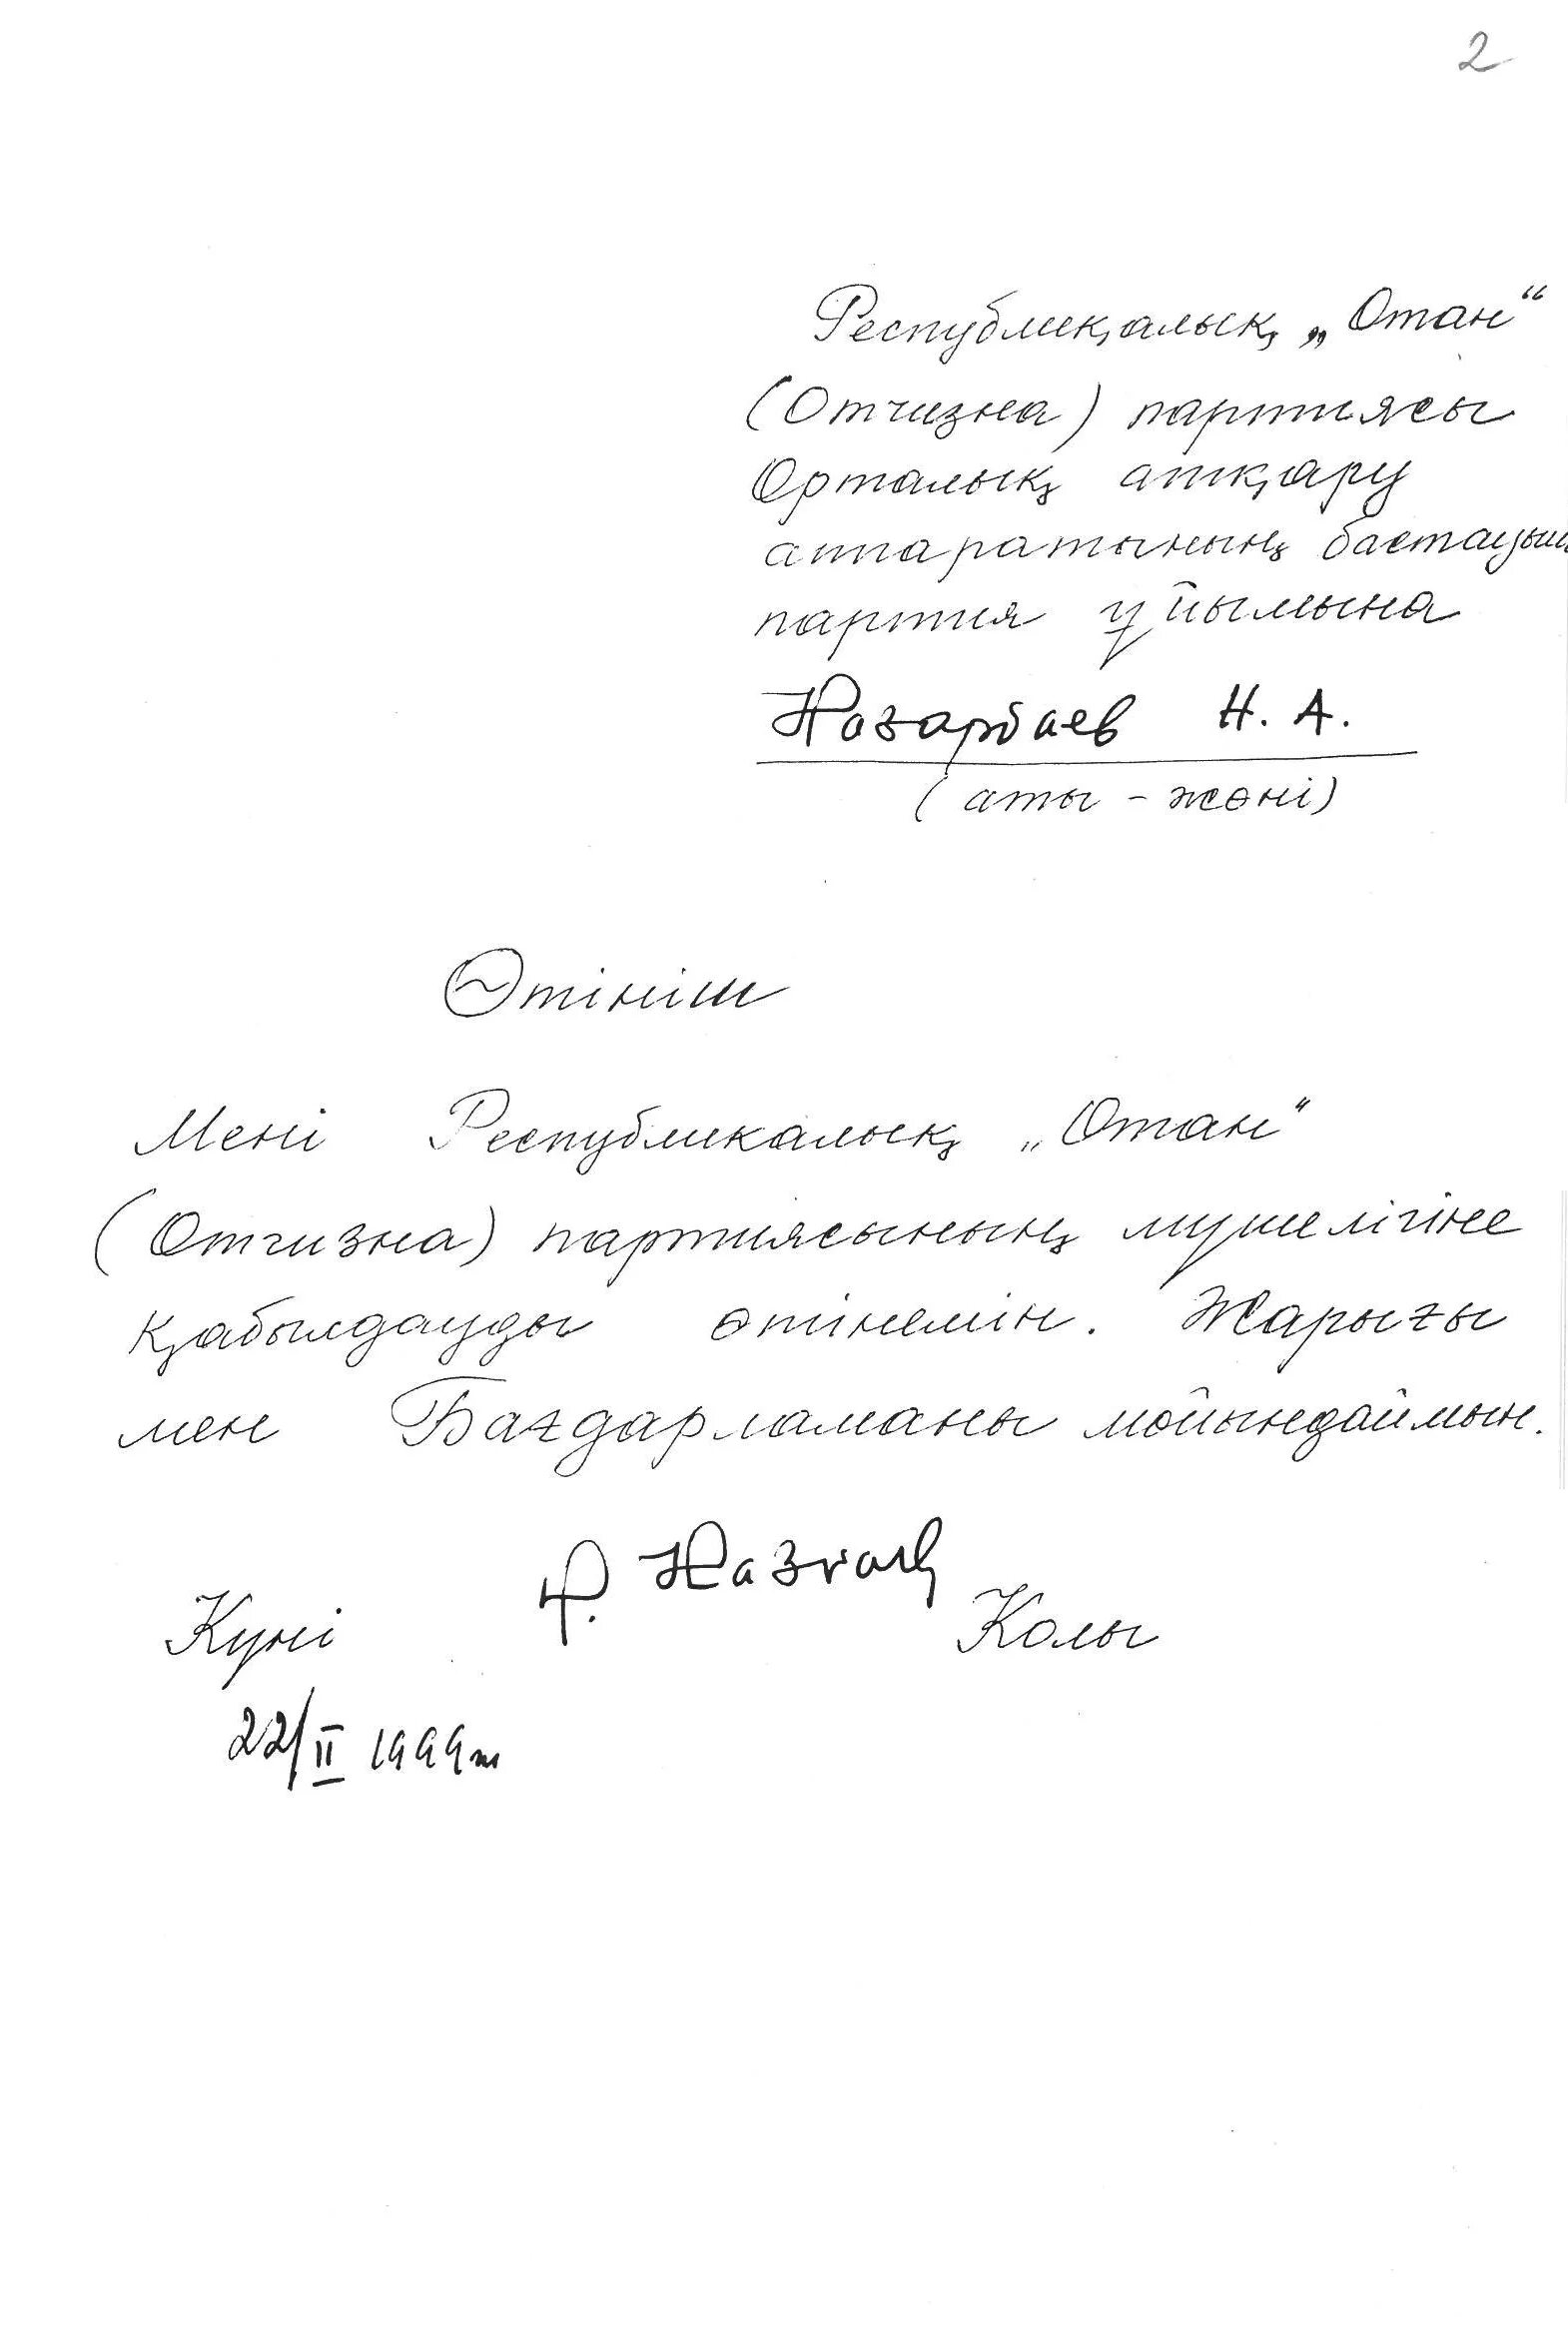 2
Республиқалық „Отан“
(Отчизна) партиясы
Орталық атқару
аппаратының бастауыш
партия ұйымына
Назарбаев Н. А.
(аты - жөні)
Өтініш
Мені Республикалық „Отан“
(Отчизна) партиясының мүшелігіне
қабылдауды өтінемін. Жарығы
мен Бағдарламаны мойындаймын.
Күні Колы
22/II 1999ж